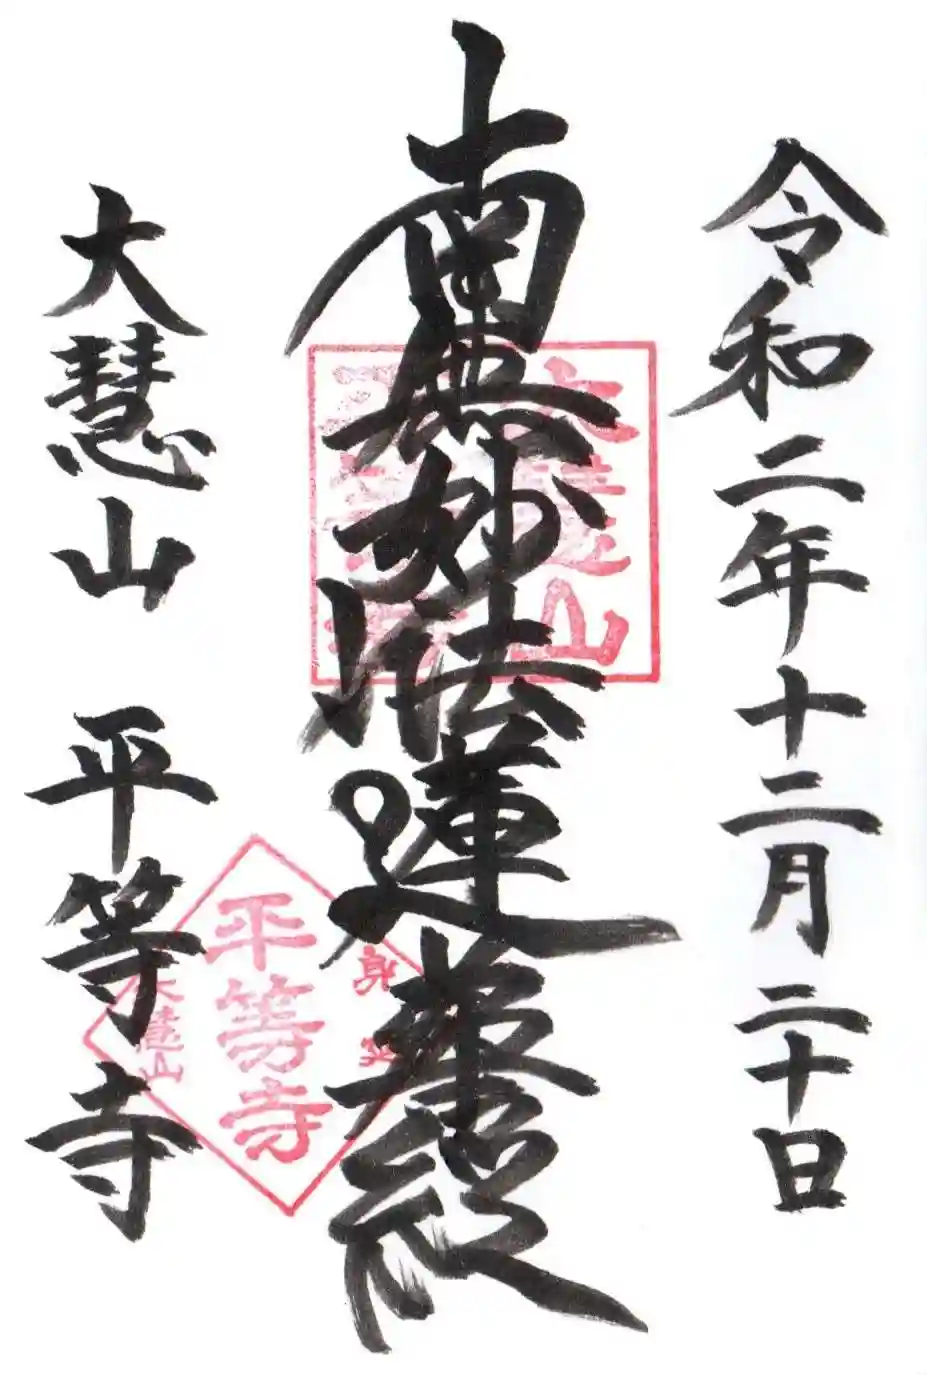 令和二年十二月二十日
南無妙法蓮華経
大慧山 平等寺
平等寺
大慧山